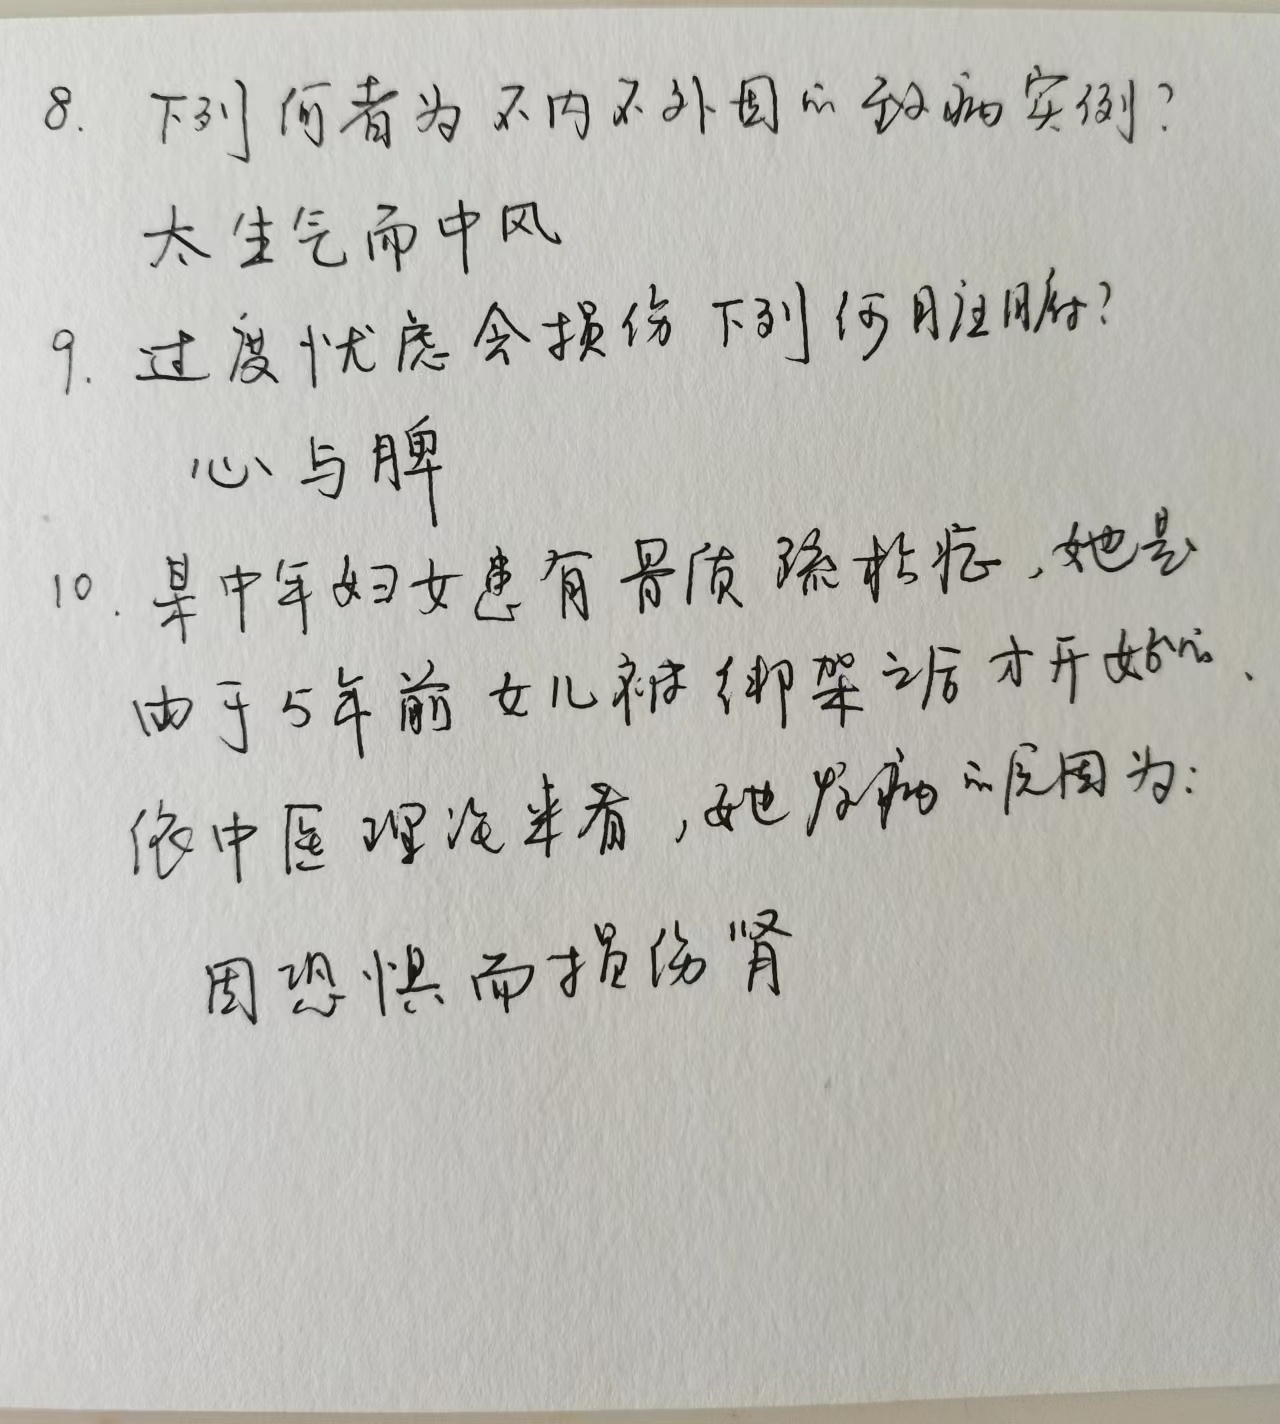 8. 下列何者为不内不外因的致病实例?
太生气而中风
9. 过度忧虑会损伤下列何脏腑?
心与脾
10. 某中年妇女患有骨质疏松症,她是
由于5年前女儿被绑架之后才开始的、
依中医理论来看,她发病的原因为:
因恐惧而损伤肾